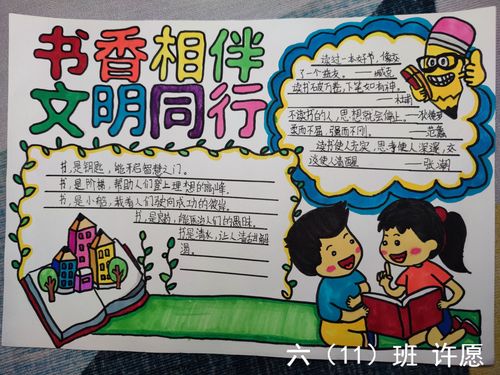 书香相伴
文明同行
读过一本好书，像交
了一个益友。——臧克
读书破万卷，下笔如有神。
——杜甫
不读书的人，思想就会停止。——狄德罗
柔而不屈，强而不刚。
读书使人充实，思考使人深邃，交
谈使人清醒
书，是钥匙，能开启智慧之门。
书，是阶梯，帮助人们登上理想的高峰。
书，是小船，载着人们驶向成功的彼岸。
书，是良药，能医治人们的愚昧。
书是清水，让人清甜解
渴。
六（11）班 许愿